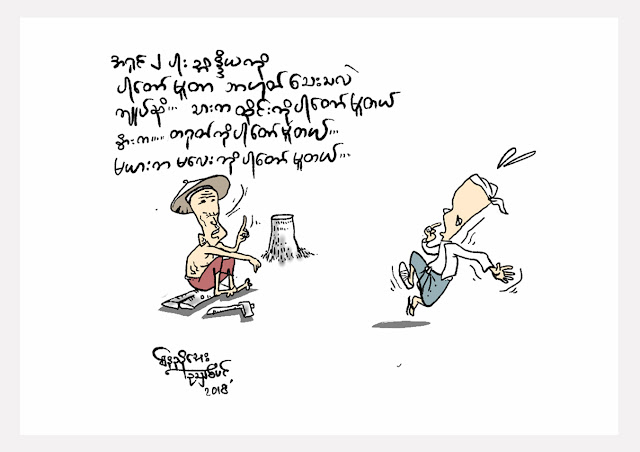 အရှင် ၂ ပါး အိန္ဒိယကို
ပါတော်မူတာ ဘာဟုတ်သေးသလဲ
ကျုပ်ဆို... သားက ထိုင်းကိုပါတော်မူတယ်
နွားက.... တရုတ်ကိုပါတော်မူတယ်...
မယားက မလေးကိုပါတော်မူတယ်...
2018